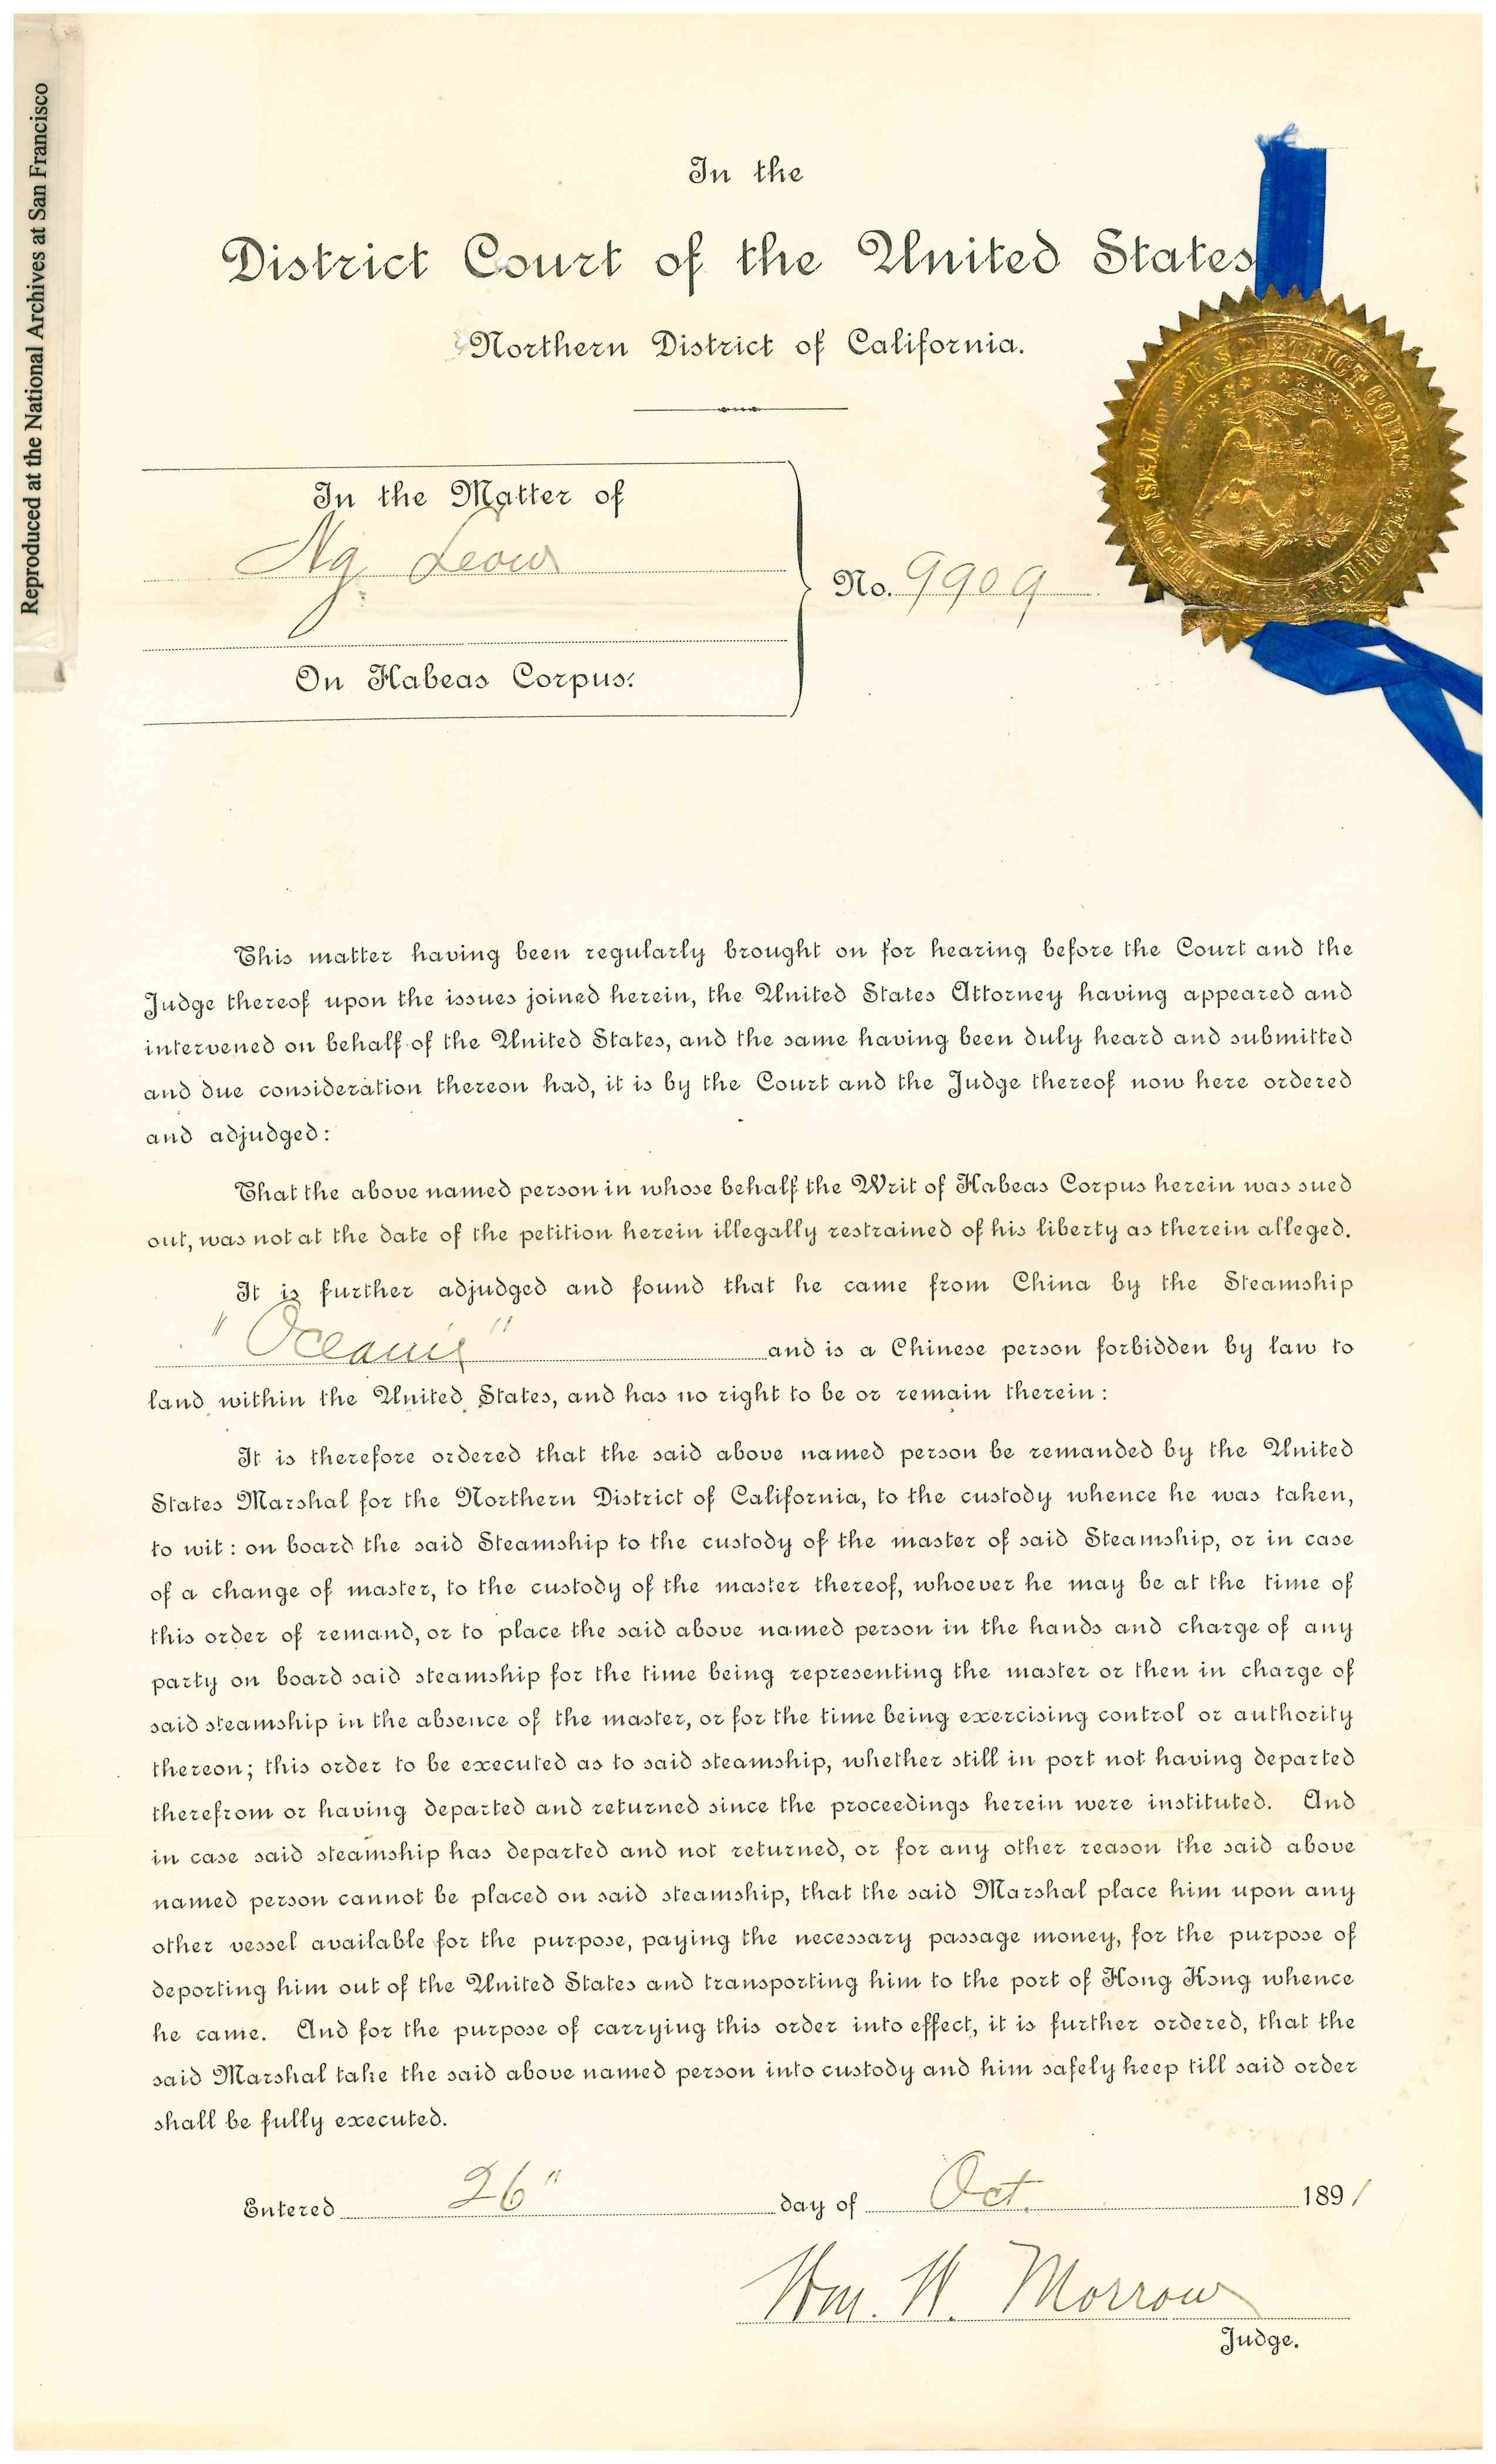 Reproduced at the National Archives at San Francisco
In the
District Court of the United States
Northern District of California.
In the Matter of
Ng Leow
No. 9909
On Habeas Corpus.
SEAL OF THE U.S. DISTRICT COURT
NORTHERN DIST. CALIFORNIA
This matter having been regularly brought on for hearing before the Court and the
Judge thereof upon the issues joined herein, the United States Attorney having appeared and
intervened on behalf of the United States, and the same having been duly heard and submitted
and due consideration thereon had, it is by the Court and the Judge thereof now here ordered
and adjudged:
That the above named person in whose behalf the Writ of Habeas Corpus herein was sued
out, was not at the date of the petition herein illegally restrained of his liberty as therein alleged.
It is further adjudged and found that he came from China by the Steamship
"Oceanic" and is a Chinese person forbidden by law to
land within the United States, and has no right to be or remain therein:
It is therefore ordered that the said above named person be remanded by the United
States Marshal for the Northern District of California, to the custody whence he was taken,
to wit: on board the said Steamship to the custody of the master of said Steamship, or in case
of a change of master, to the custody of the master thereof, whoever he may be at the time of
this order of remand, or to place the said above named person in the hands and charge of any
party on board said steamship for the time being representing the master or then in charge of
said steamship in the absence of the master, or for the time being exercising control or authority
thereon; this order to be executed as to said steamship, whether still in port not having departed
therefrom or having departed and returned since the proceedings herein were instituted. And
in case said steamship has departed and not returned, or for any other reason the said above
named person cannot be placed on said steamship, that the said Marshal place him upon any
other vessel available for the purpose, paying the necessary passage money, for the purpose of
deporting him out of the United States and transporting him to the port of Hong Kong whence
he came. And for the purpose of carrying this order into effect, it is further ordered, that the
said Marshal take the said above named person into custody and him safely keep till said order
shall be fully executed.
Entered 26" day of Oct. 1891
Wm. W. Morrow
Judge.